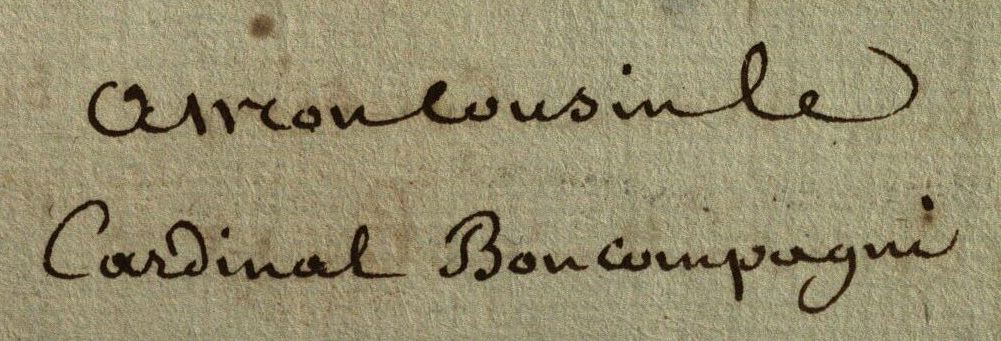 A mon cousin le
Cardinal Boncompagni